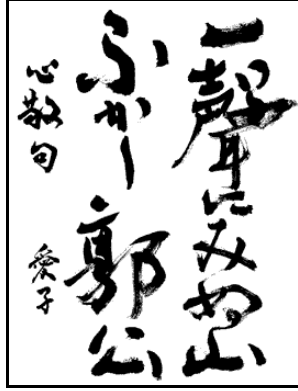 一聲にみぬ山
ふかし 郭公
心敬句 愛子